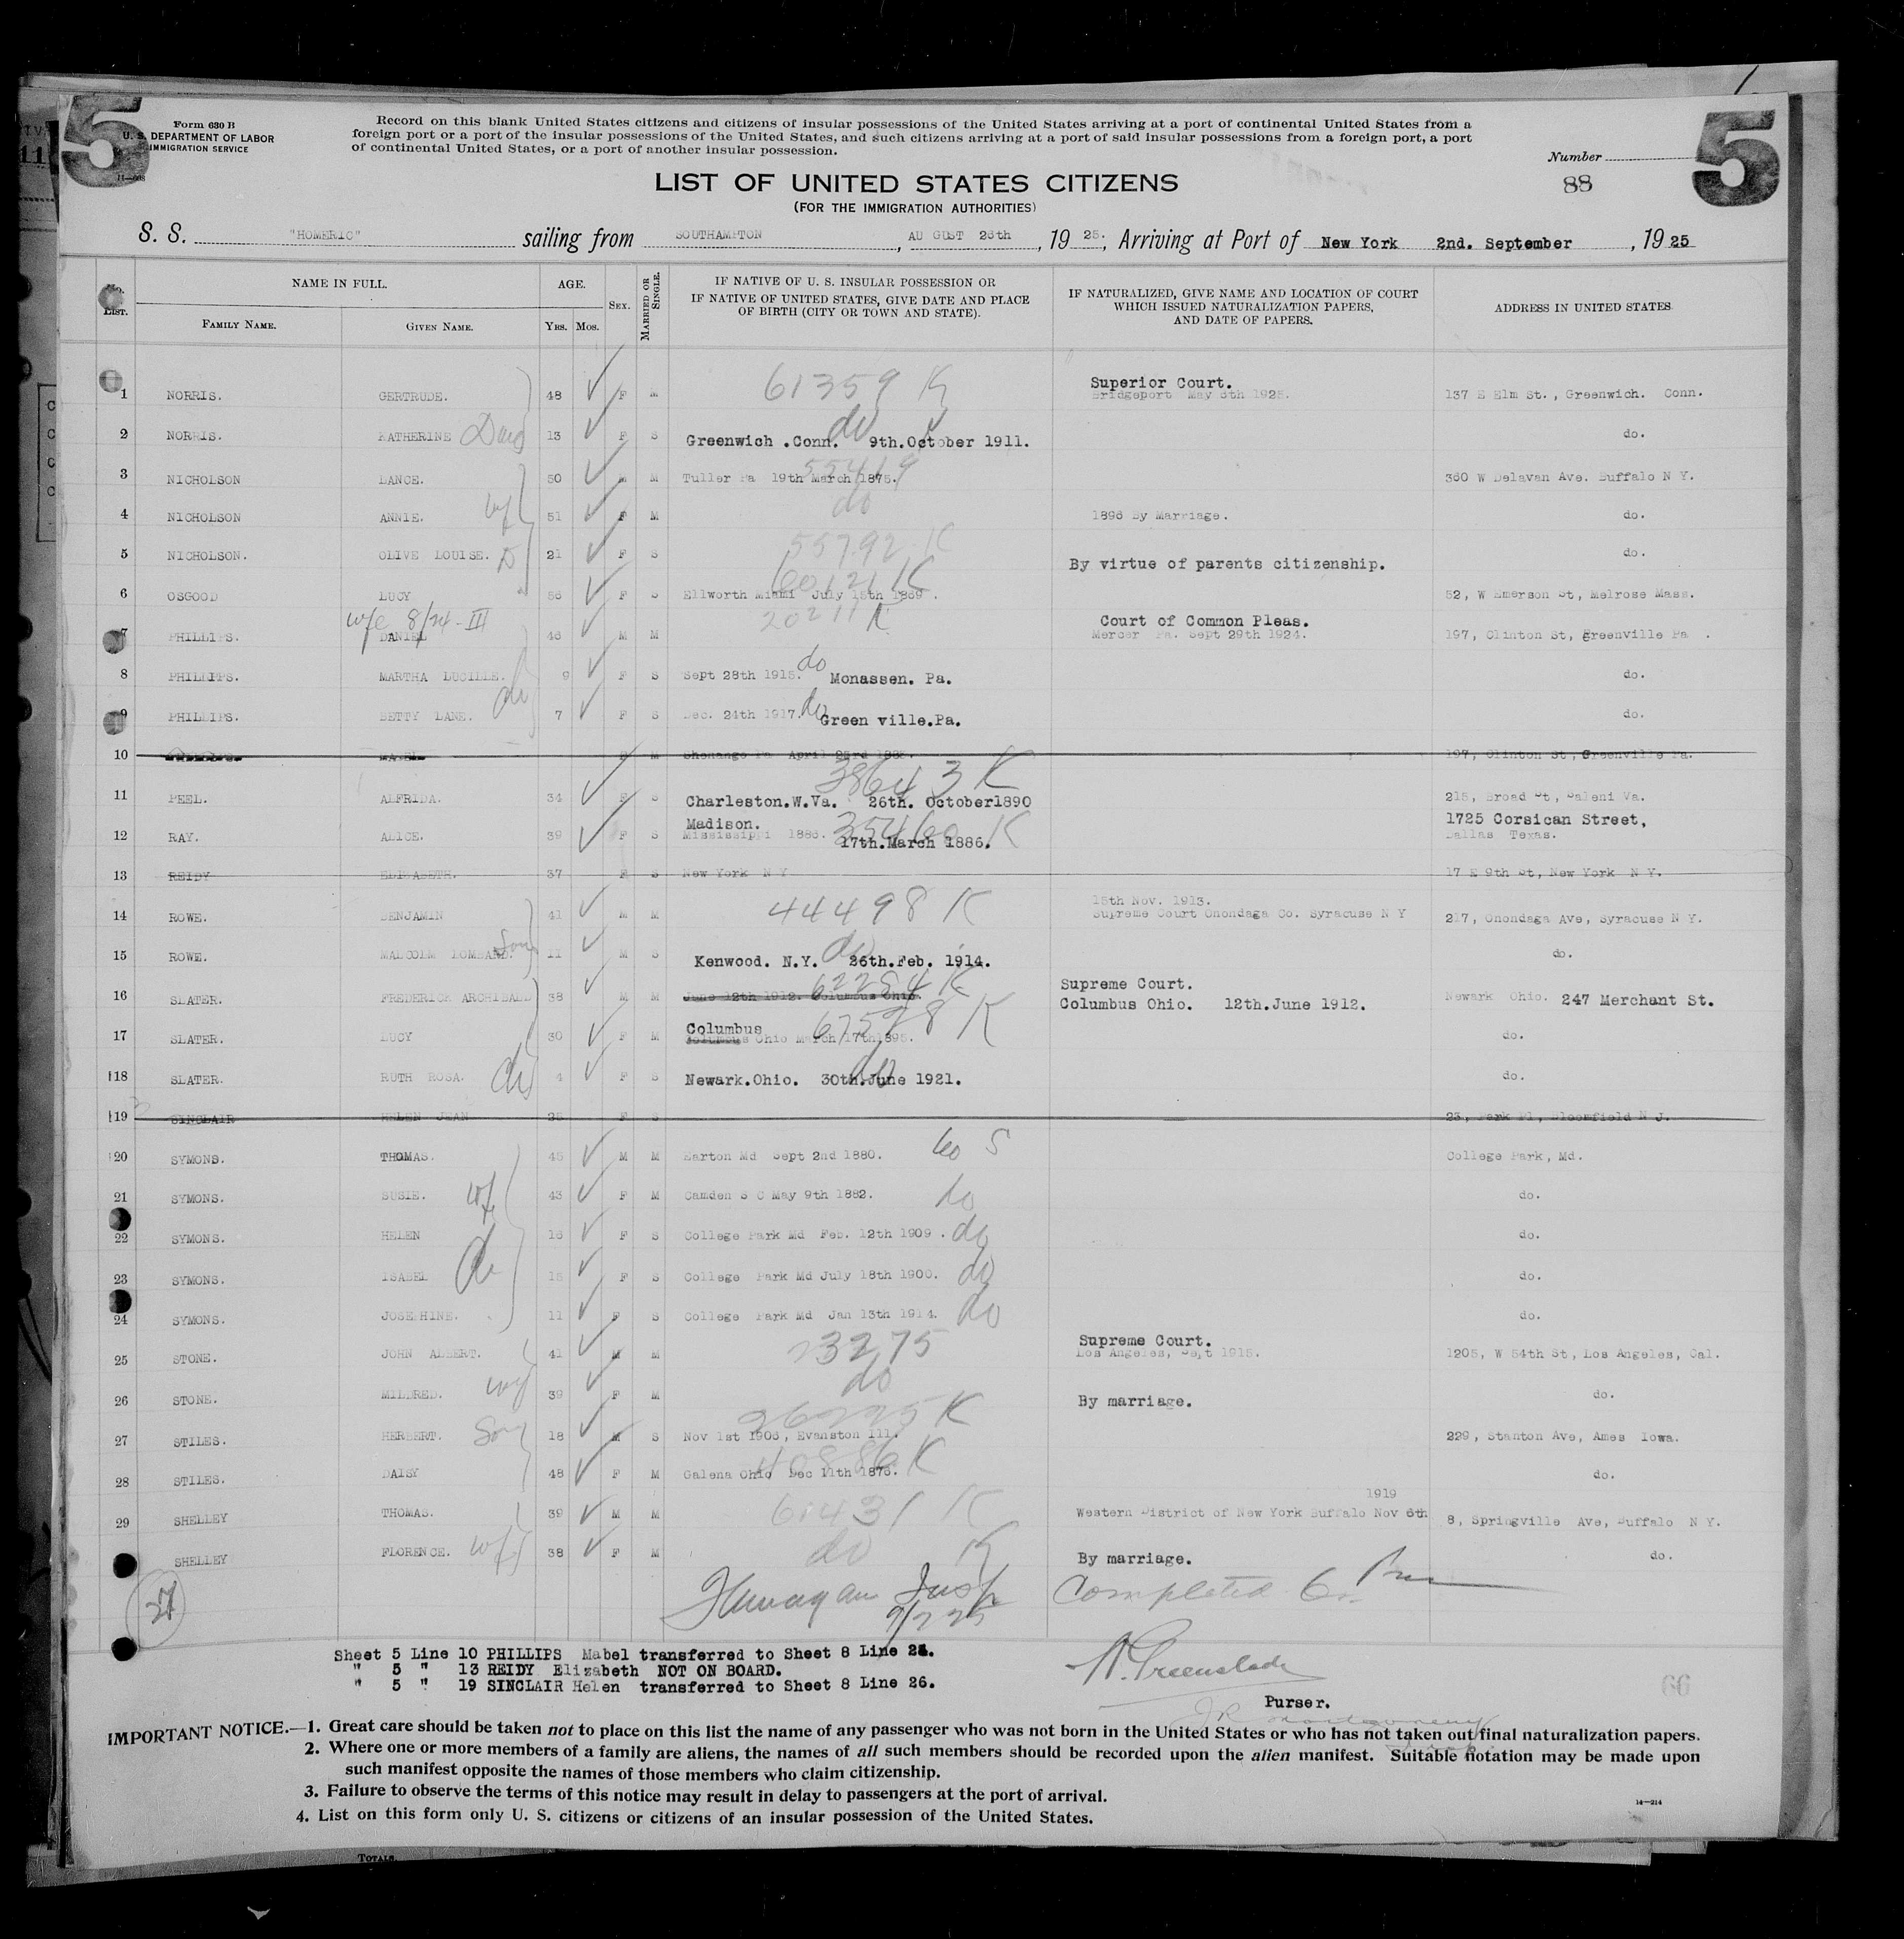 5
5
Form 630 B
U. S. DEPARTMENT OF LABOR
IMMIGRATION SERVICE
Record on this blank United States citizens and citizens of insular possessions of the United States arriving at a port of continental United States from a
foreign port or a port of the insular possessions of the United States, and such citizens arriving at a port of said insular possessions from a foreign port, a port
of continental United States, or a port of another insular possession.
Number
88
LIST OF UNITED STATES CITIZENS
(FOR THE IMMIGRATION AUTHORITIES)
S. S. "HOMERIC" sailing from SOUTHAMPTON, AU GUST 26th, 19 25., Arriving at Port of New York 2nd. September, 19 25
No. LIST. NAME IN FULL. FAMILY NAME. GIVEN NAME. AGE. YRS. MOS. SEX. MARRIED OR SINGLE.
IF NATIVE OF U. S. INSULAR POSSESSION OR
IF NATIVE OF UNITED STATES, GIVE DATE AND PLACE
OF BIRTH (CITY OR TOWN AND STATE).
IF NATURALIZED, GIVE NAME AND LOCATION OF COURT
WHICH ISSUED NATURALIZATION PAPERS,
AND DATE OF PAPERS.
ADDRESS IN UNITED STATES
1 NORRIS. GERTRUDE. 48 F M 61359 K Superior Court. Bridgeport May 8th 1925. 137 E Elm St., Greenwich. Conn.
2 NORRIS. KATHERINE 13 F S Greenwich .Conn. do 9th.October 1911. do.
3 NICHOLSON LANCE. 50 M M Tuller Pa 19th March 1875. 55419 360 W Delavan Ave. Buffalo N Y.
4 NICHOLSON ANNIE. wf 51 F M do 1896 By Marriage. do.
5 NICHOLSON. OLIVE LOUISE. D 21 F S 55792 K By virtue of parents citizenship. do.
6 OSGOOD LUCY 56 F S 60121 K Ellworth Miami July 15th 1869. 52, W Emerson St, Melrose Mass.
wfe 8/24-III
7 PHILLIPS. DANIEL 46 M M 20211 K Court of Common Pleas. Mercer Pa. Sept 29th 1924. 197, Clinton St, Greenville Pa.
8 PHILLIPS. MARTHA LUCILLE. 9 F S Sept 28th 1915. do Monassen. Pa. do.
9 PHILLIPS. BETTY LANE. 7 F S Dec. 24th 1917. do Green ville.Pa. do.
10 M Shenango Pa April 23rd 197, Clinton St, Greenville Pa.
11 PEEL. ALFRIDA. 34 F S 38643 K Charleston.W.Va. 26th. October1890 215, Broad St, Salem Va.
12 RAY. ALICE. 39 F S Madison. Mississippi 1886. 35460 K 17th.March 1886. 1725 Corsican Street, Dallas Texas.
13 REIDY ELIZABETH. 37 F S New York N Y 17 E 9th St, New York N Y.
14 ROWE. BENJAMIN 41 M M 44498 K 15th Nov. 1913. Supreme Court Onondaga Co. Syracuse N Y 217, Onondaga Ave, Syracuse N Y.
15 ROWE. MALCOLM LOMBARD. Son 11 M S Kenwood. N.Y. do 26th.Feb. 1914. do.
16 SLATER. FREDERICK ARCHIBALD 38 M M June 12th 1912. Columbus Ohio 62284 K Supreme Court. Columbus Ohio. 12th.June 1912. Newark Ohio. 247 Merchant St.
17 SLATER. LUCY 30 F M Columbus Ohio March 17th 1895. 67528 K do.
18 SLATER. RUTH ROSA. 4 F S Newark.Ohio. 30th.June 1921. do do.
19 SINCLAIR HELEN JEAN 25 F S 23, Park Pl, Bloomfield N J.
20 SYMONS. THOMAS. 45 M M Earton Md Sept 2nd 1880. College Park, Md.
21 SYMONS. SUSIE. wf 43 F M Camden S C May 9th 1882. do do.
22 SYMONS. HELEN 16 F S College Park Md Feb. 12th 1909. do do.
23 SYMONS. ISABEL F S College Park Md July 18th 1900. do do.
24 SYMONS. JOSEPHINE. 11 F S College Park Md Jan 13th 1914. do do.
25 STONE. JOHN ALBERT. 41 M M 23275 Supreme Court. Los Angeles, Sept 1915. 1205, W 54th St, Los Angeles, Cal.
26 STONE. MILDRED. wf 39 F M do By marriage. do.
27 STILES. HERBERT. Son 18 M S 36225 K Nov 1st 1906, Evanston Ill. 229, Stanton Ave, Ames Iowa.
28 STILES. DAISY 48 F M 40886 K Galena Ohio Dec 11th 1876. do.
29 SHELLEY THOMAS. 39 M M 61431 K Western District of New York Buffalo Nov 6th 1919 8, Springville Ave, Buffalo N Y.
SHELLEY FLORENCE. wf 38 F M do K By marriage. do.
27
Flanagan Insp
9/2 25
Completed
Sheet 5 Line 10 PHILLIPS Mabel transferred to Sheet 8 Line 24.
" 5 " 13 REIDY Elizabeth NOT ON BOARD.
" 5 " 19 SINCLAIR Helen transferred to Sheet 8 Line 26.
Greenslade
Purser.
66
IMPORTANT NOTICE.—1. Great care should be taken not to place on this list the name of any passenger who was not born in the United States or who has not taken out final naturalization papers.
2. Where one or more members of a family are aliens, the names of all such members should be recorded upon the alien manifest. Suitable notation may be made upon
such manifest opposite the names of those members who claim citizenship.
3. Failure to observe the terms of this notice may result in delay to passengers at the port of arrival.
4. List on this form only U. S. citizens or citizens of an insular possession of the United States.
14—214
TOTALS